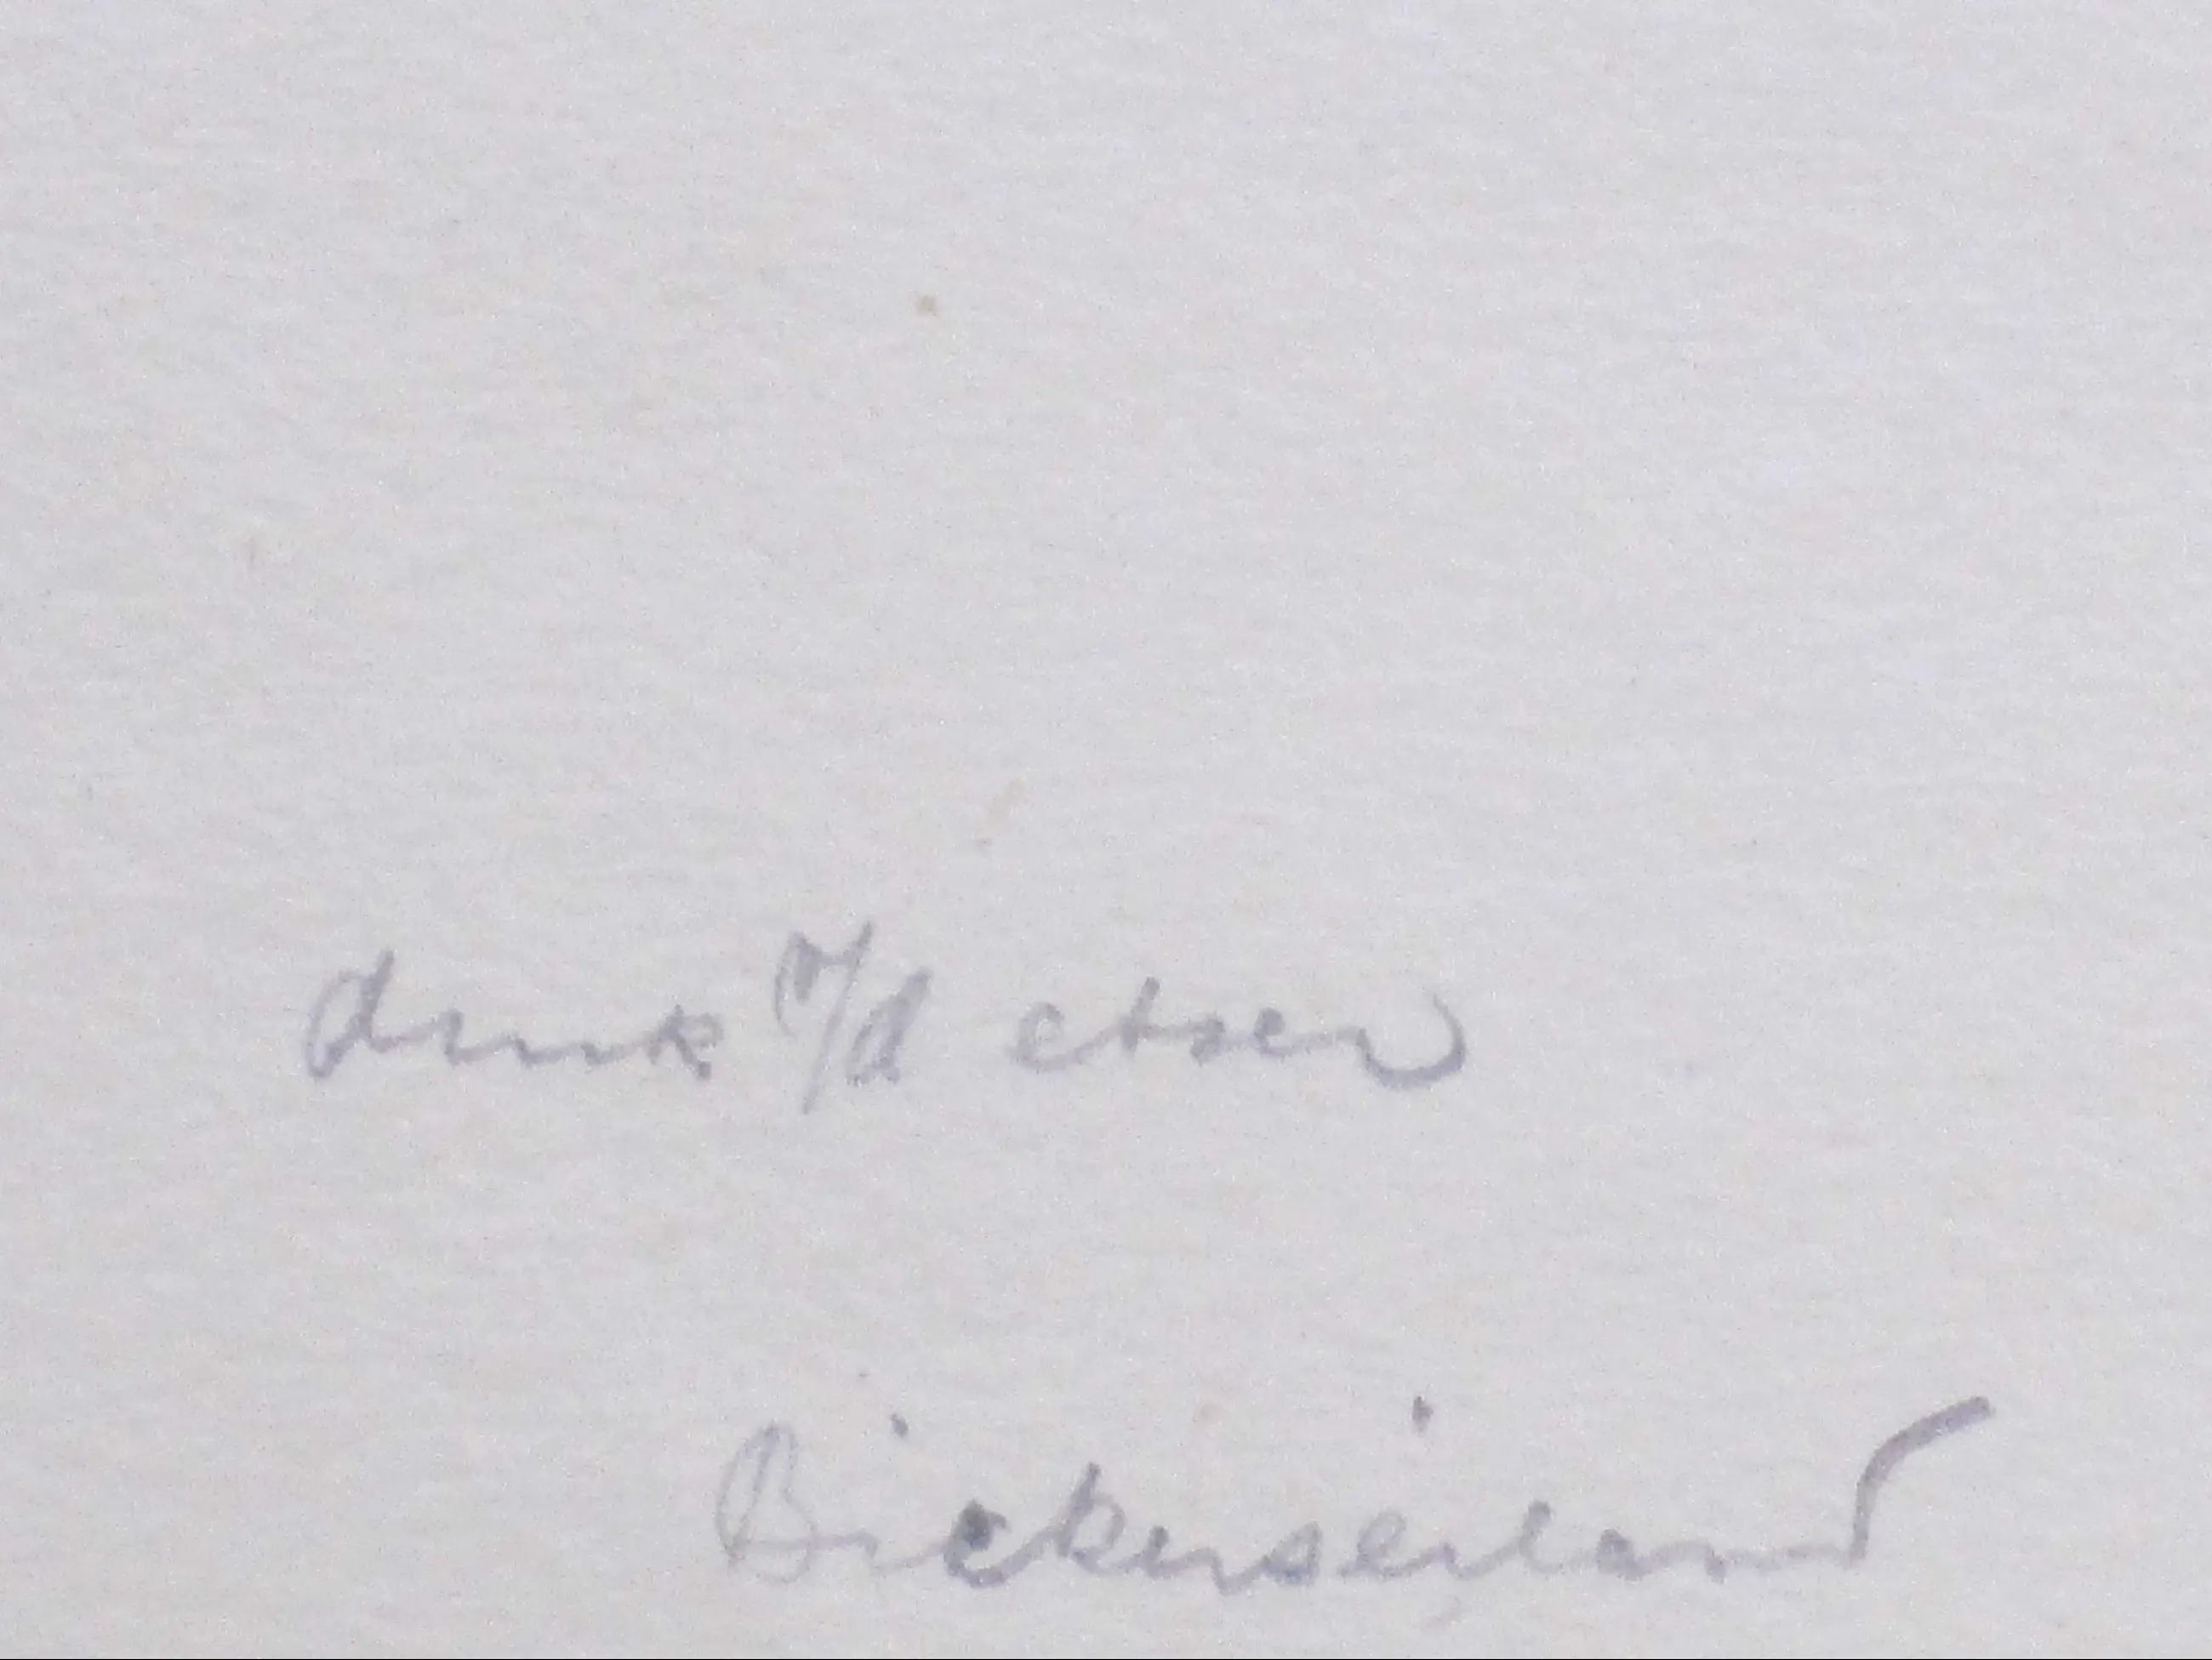 druk v/d etser
Bickerseiland